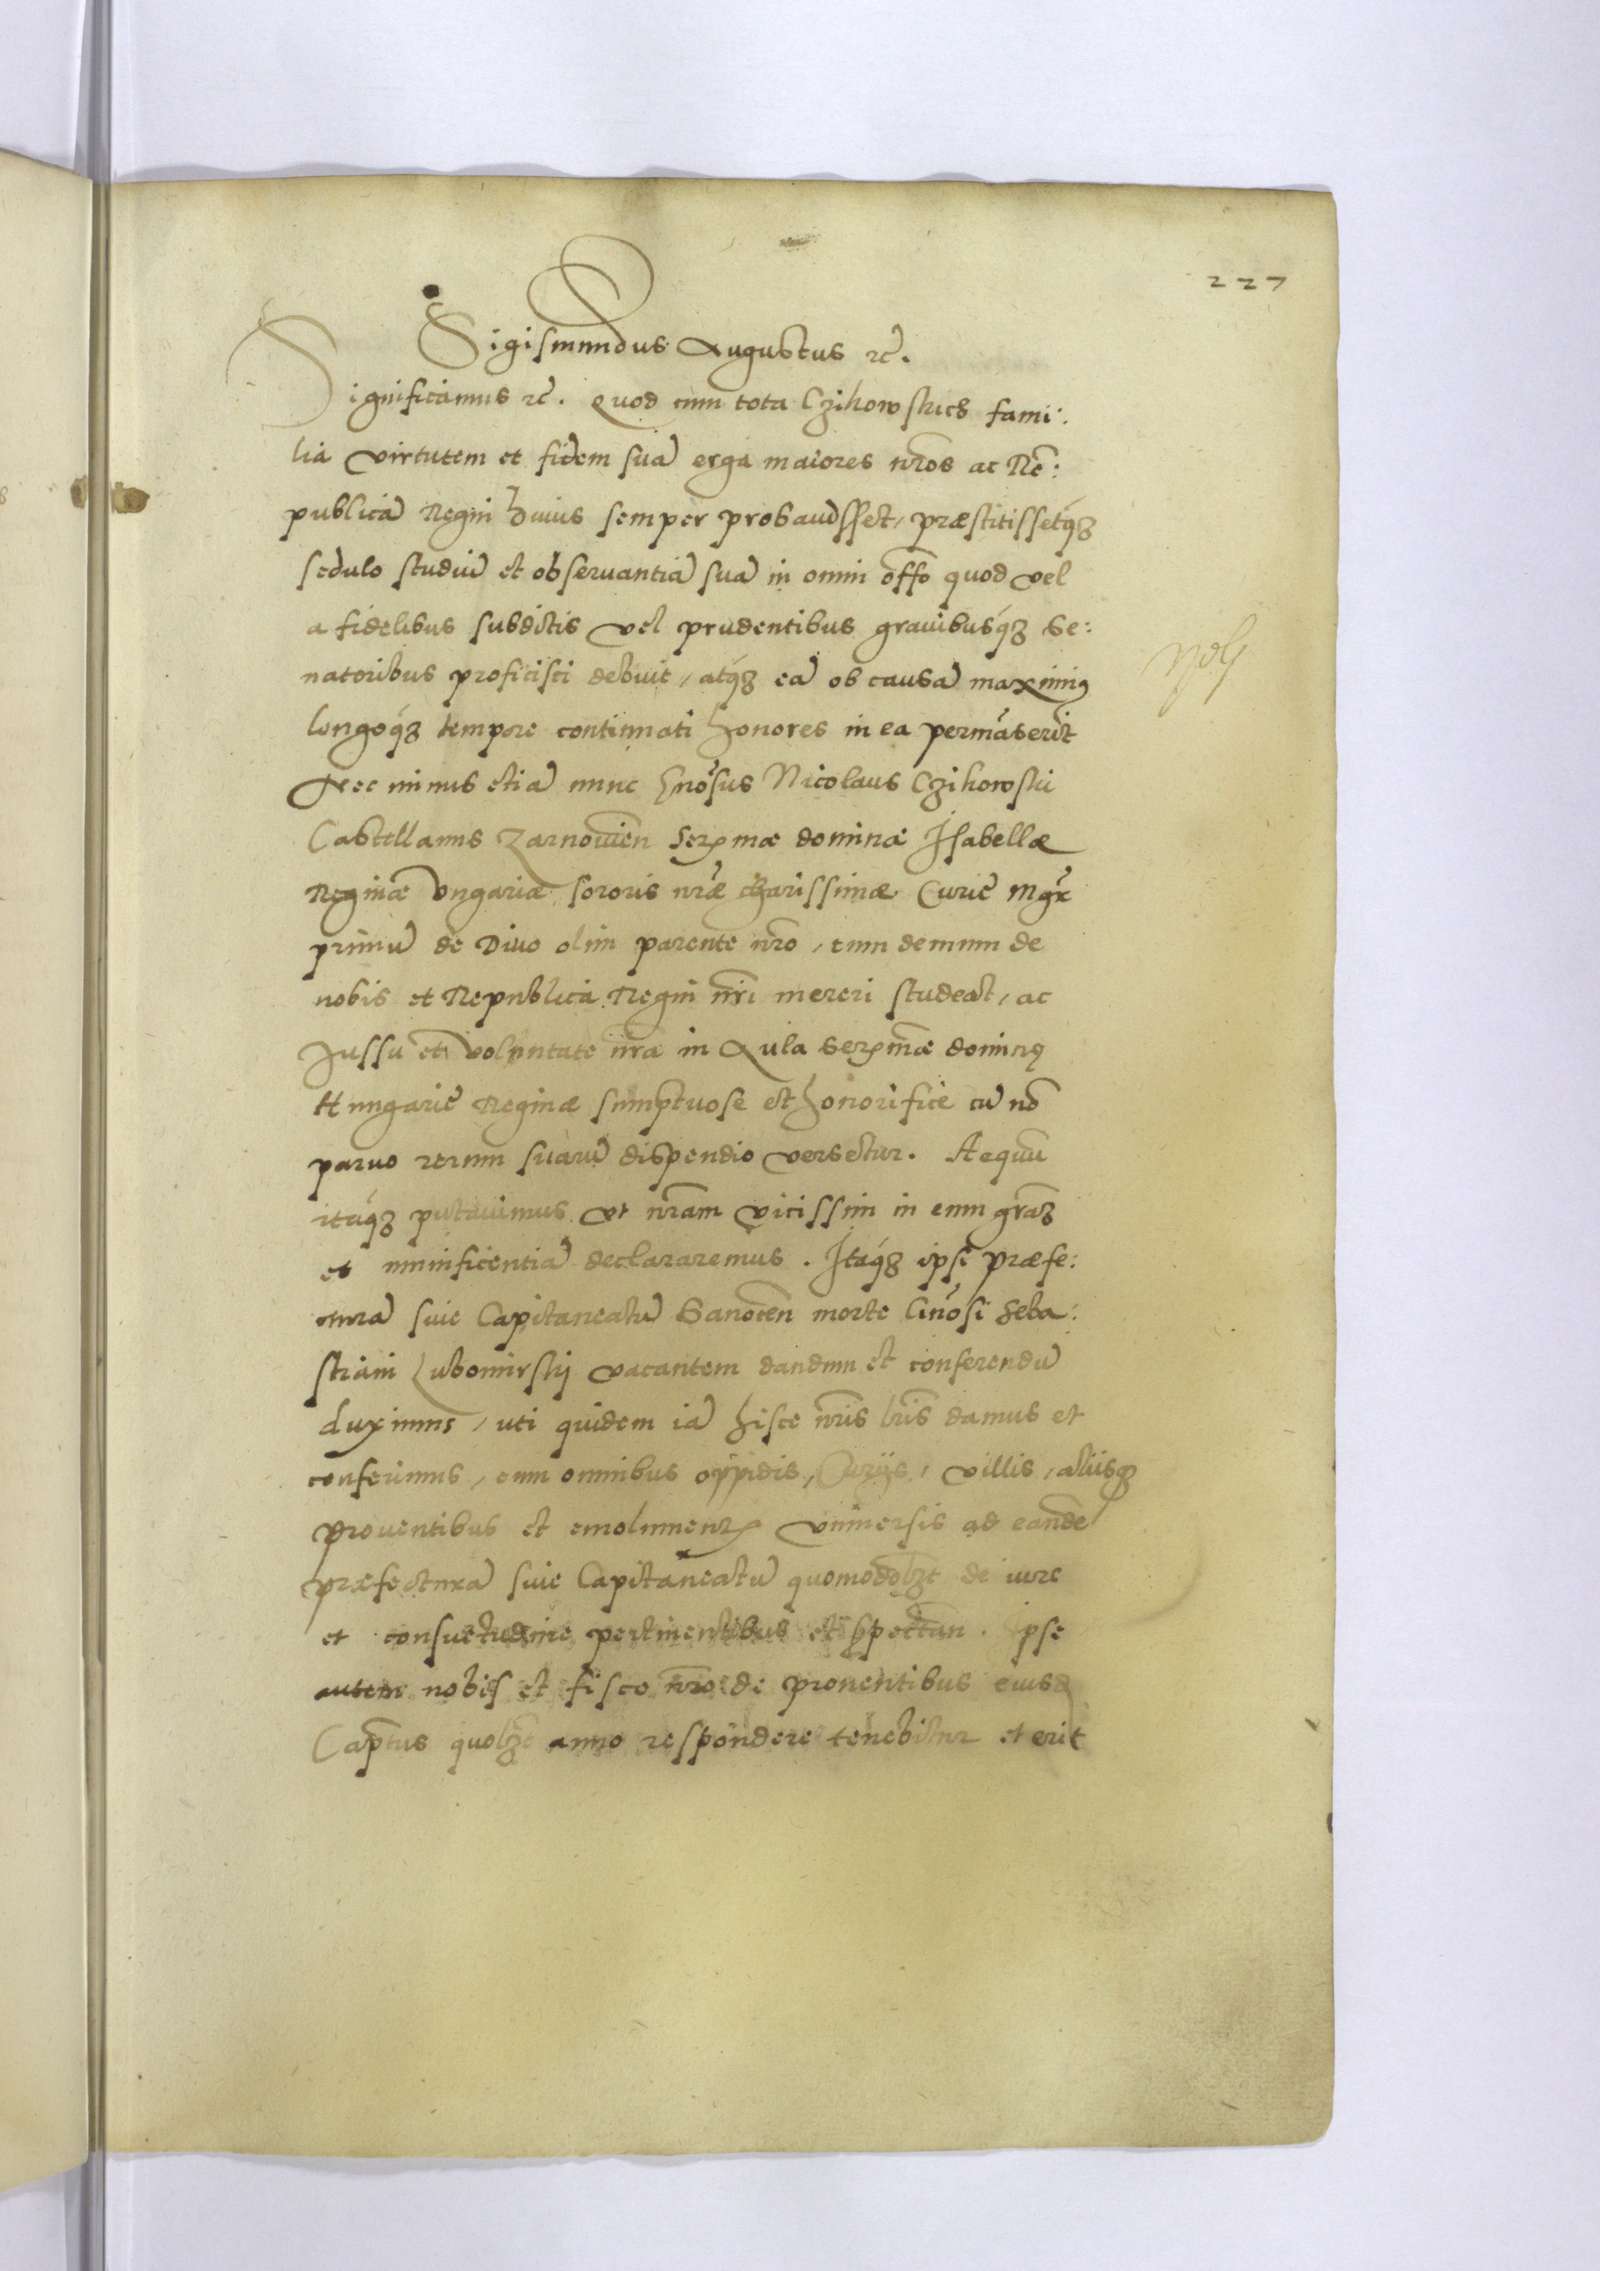 227
Sigismundus Augustus rc̄.
Significamus rc̄. Quod cum tota Czikowskics fami:
lia virtutem et fidem suā erga maiores nr̄os ac Rē:
publicā Regni huius semper probavisset, præstitissetq́ʒ
sedulo studiū et observantiā suā in omni offō quod vel
a fidelibus subditis vel prudentibus gravibusq́ʒ Se:
natoribus proficisci debuit, atq́ʒ eā ob causā maximiq̨
longoq́ʒ tempore continuati honores in ea permāserīt
Nec minus etiā nunc Gnōsus Nicolaus Czikowski
Castellanus Zarnowień Serꝫmæ dominæ Isabellæ
Reginæ Ungariæ sororis nr̄æ charissimæ Curiē Mgr̄
primū de Divo olim parente nr̄o, tum demum de
nobis et Republica Regni nr̄i mereri studeat, ac
Jussu et voluntate nr̄a in Aula Serꝫmæ dominę
Hungariē Reginæ sumptuose et honorifice cū nō
parvo rerum suarū dispendio versetur. Aequū
itaq́ʒ putavimus ut nr̄am vicissim in eum gr̄aʒ
et munificentiā declararemus. Itaq́ʒ ipsi præfe:
cturā sive Capitaneatū Sanocēn morte Gnōsi Seba:
stiani Lubomirskÿ vacantem dandum et conferendū
duximus, uti quidem iā hisce nr̄is lr̄is damus et
conferimus, cum omnibus oppidis, Curÿs, villis, aliisqʒ
proventibus et emolumentꝫ universis ad eandē
præfecturā sive Capitaneatū quomodolʒt de iure
et consuetudine pertinentibus et spectan̄. Ipse
autem nobis et fisco nr̄o de proventibus eiusd̄
Capt̄us quolʒt anno respondere tenebitur et erit